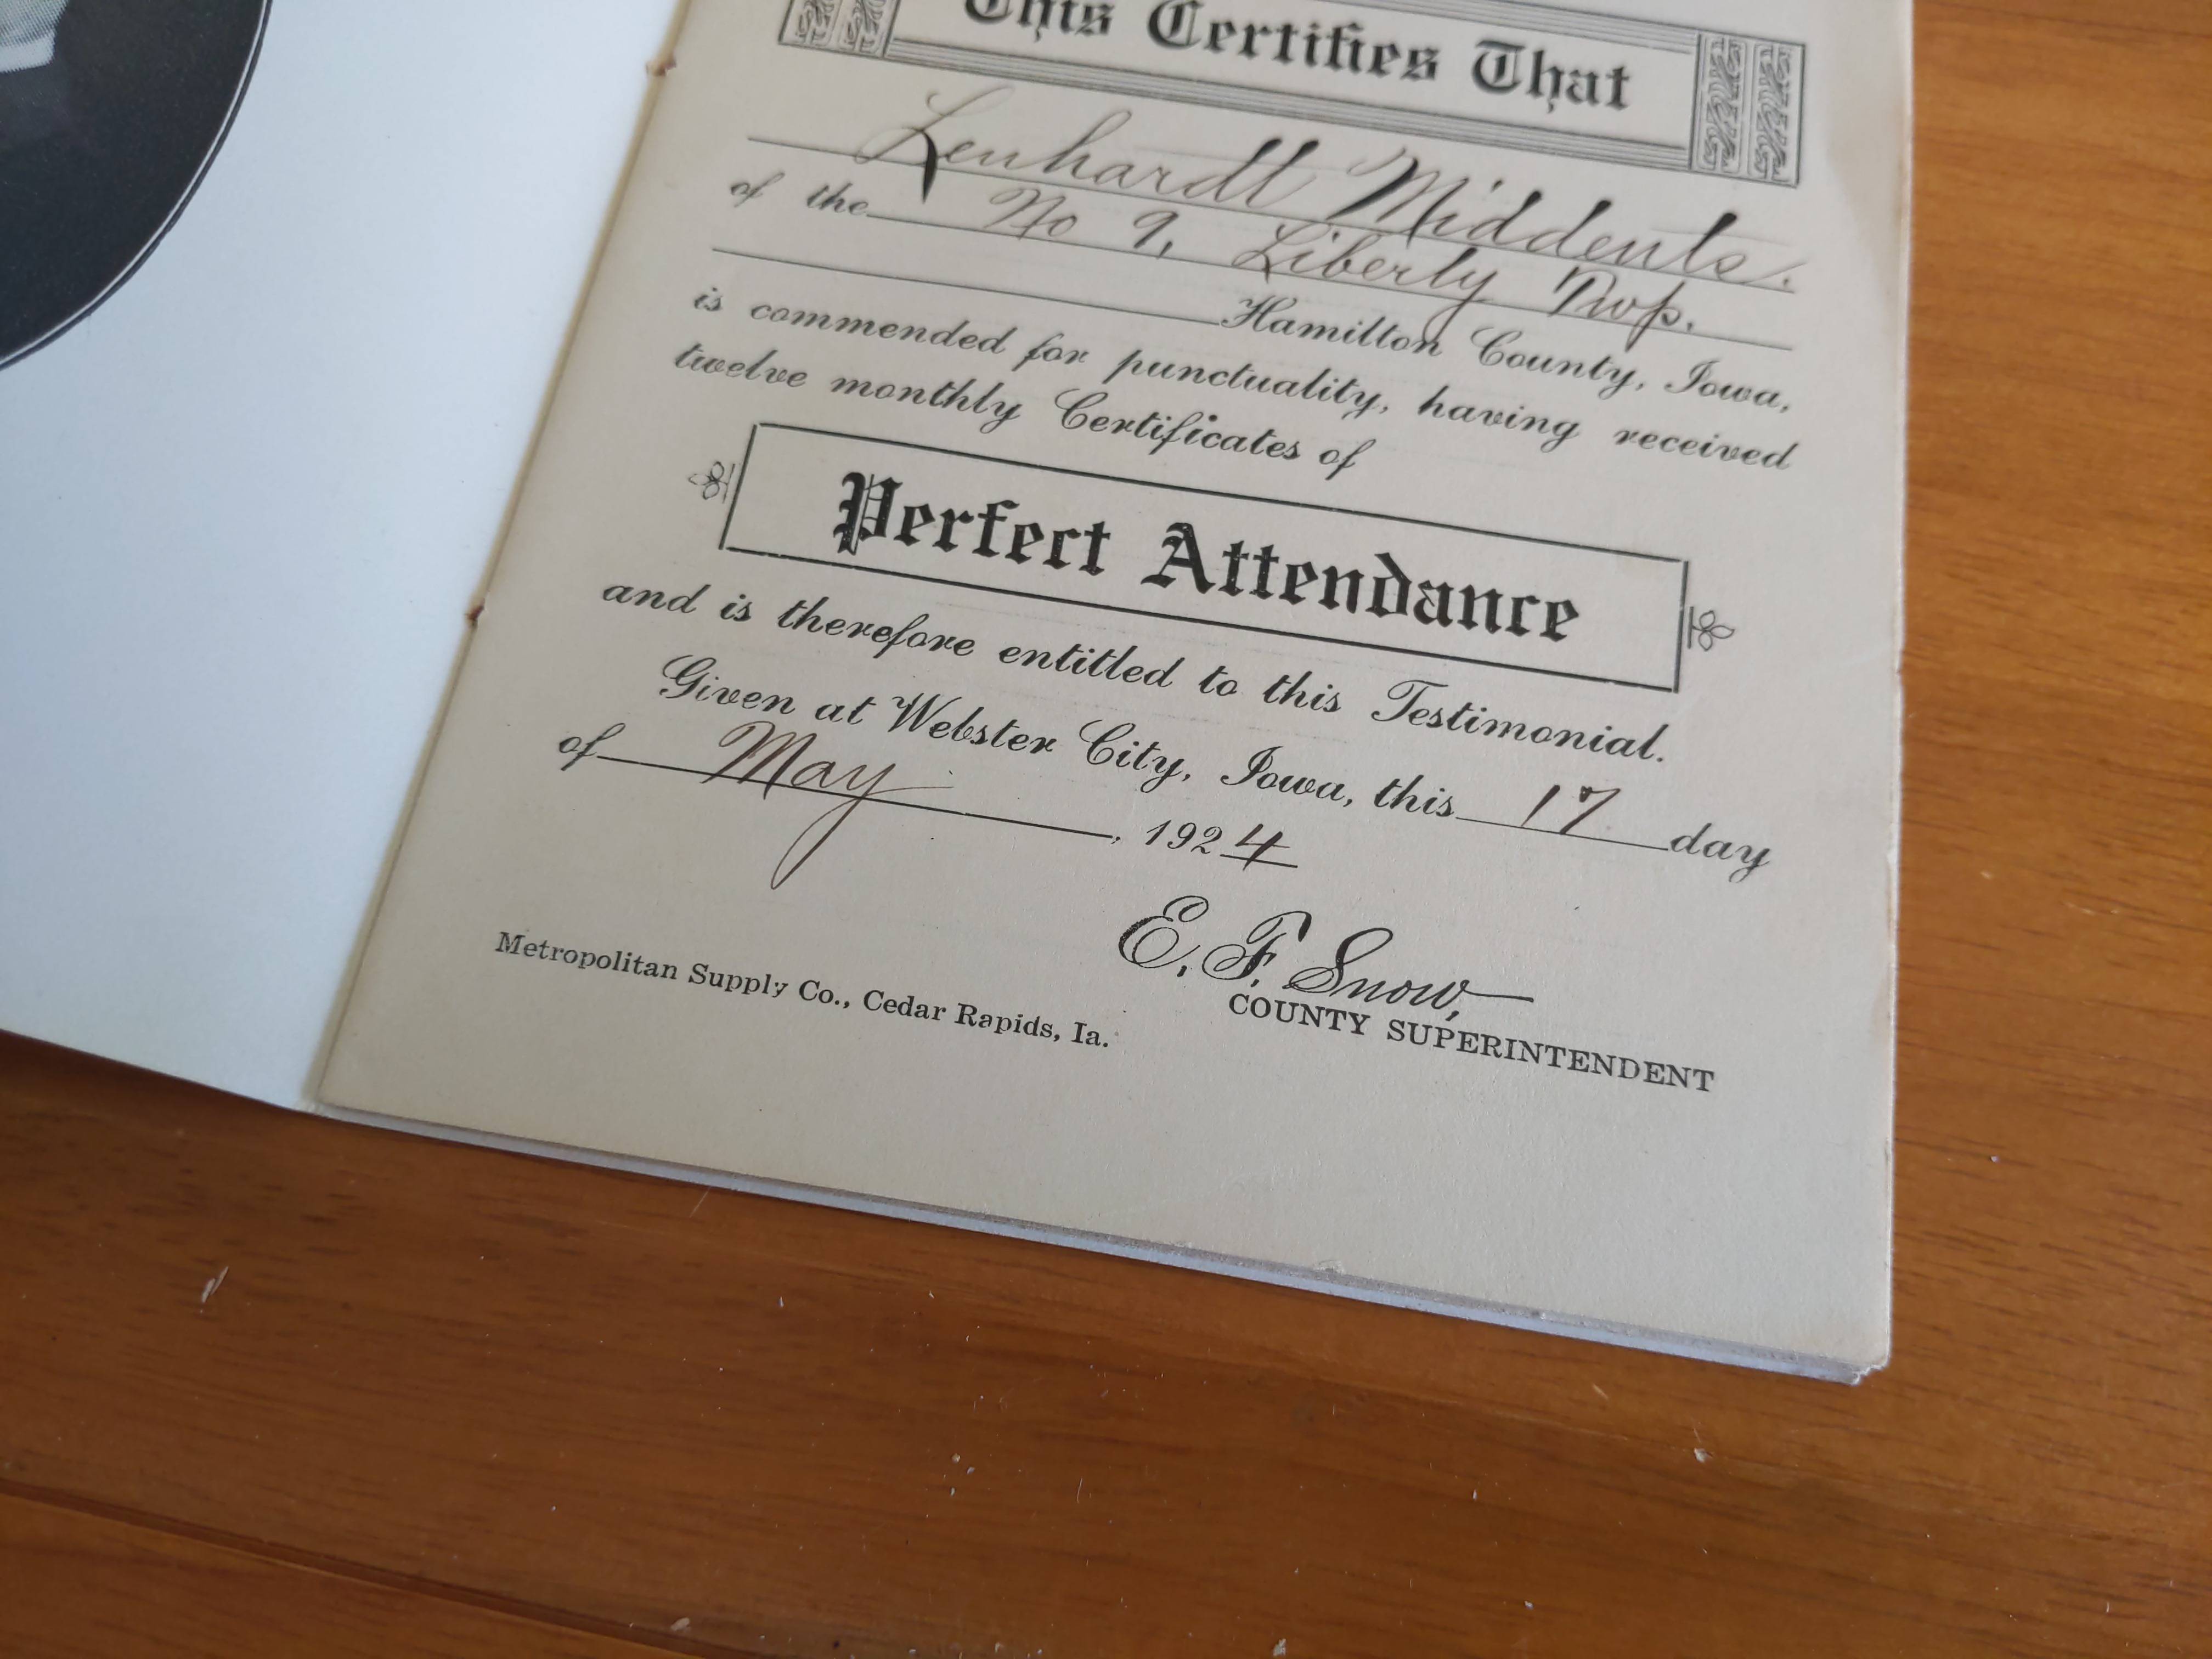 This Certifies That
Lenhardt Middents.
of the No 9, Liberty Twp.
Hamilton County, Iowa,
is commended for punctuality, having received
twelve monthly Certificates of
Perfect Attendance
and is therefore entitled to this Testimonial.
Given at Webster City, Iowa, this 17 day
of May, 1924
E. F. Snow,
COUNTY SUPERINTENDENT
Metropolitan Supply Co., Cedar Rapids, Ia.